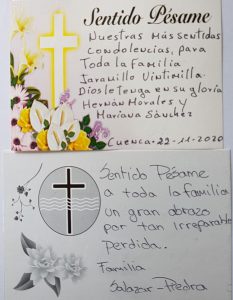 Sentido Pésame
Nuestras más sentidas
condolencias, para
Toda la familia
Jaramillo Vintimilla.
Dios le tenga en su gloria
Hernán Morales y
Mariana Sánchez
Cuenca-22-11-2020
Sentido Pésame
a toda la familia
un gran abrazo
por tan irreparable
perdida.
Familia
Salazar-Piedra